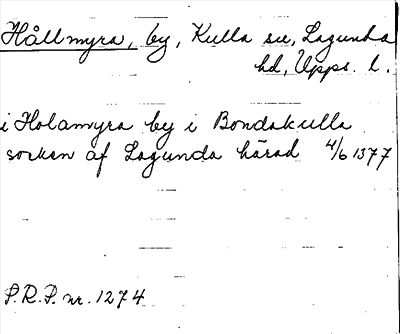 Hållmyra, by, Kulla sn, Lagunda
hd, Upps. l.
i Holamyra by i Bondakulla
sorken af Lagunda härad 4/6 1377
P.R.P. nr. 1274